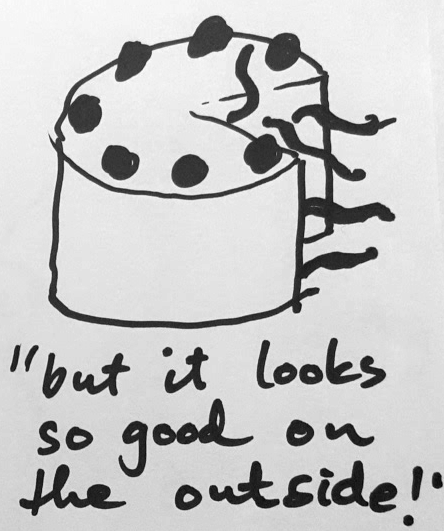 "but it looks
so good on
the outside!"